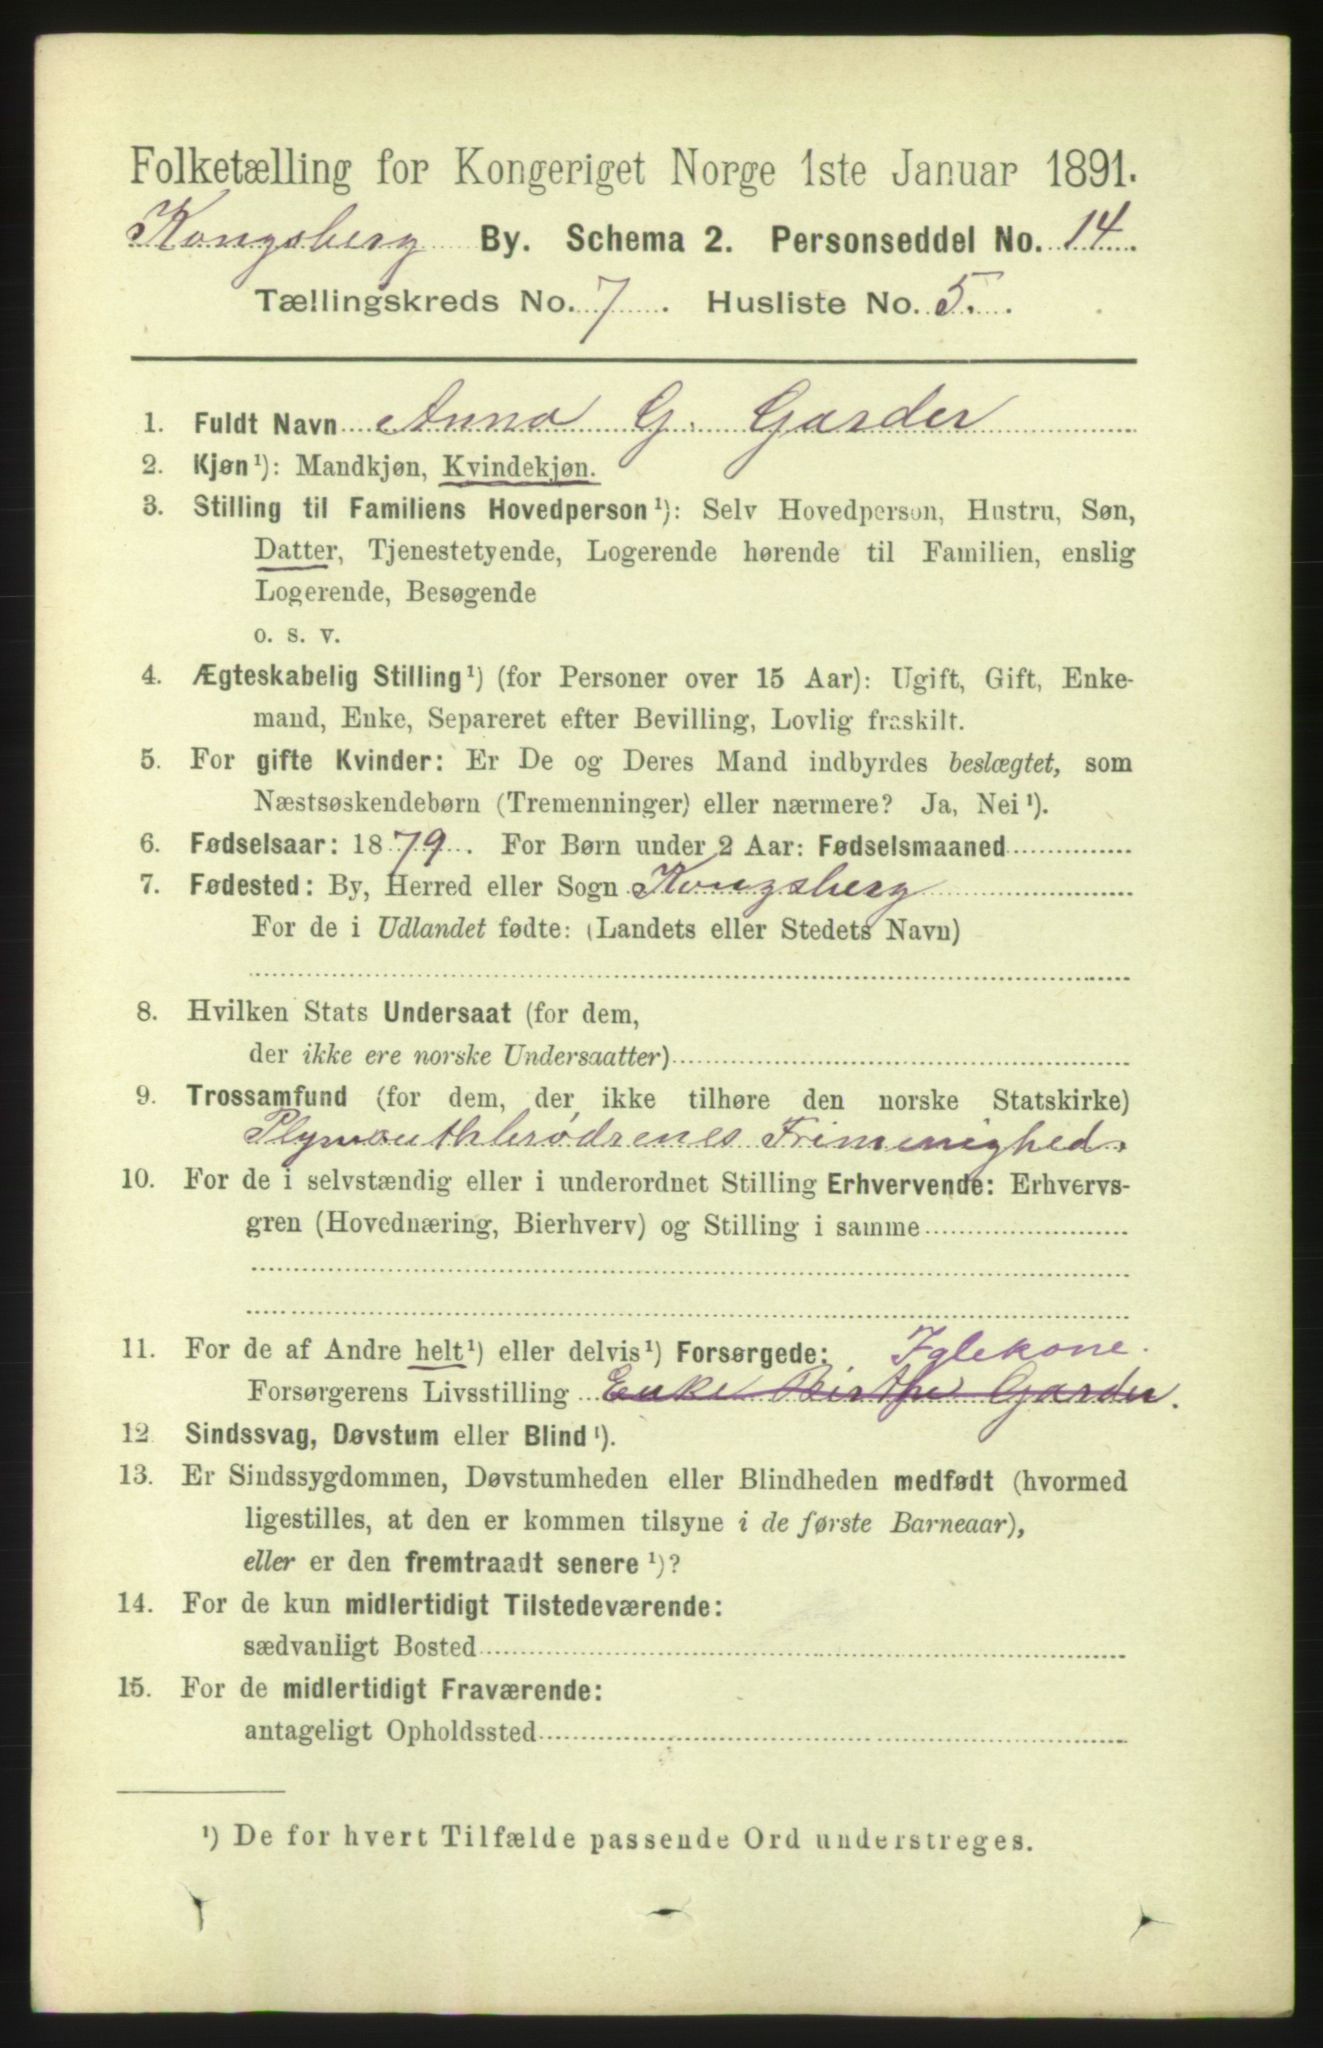 Folketælling for Kongeriget Norge 1ste Januar 1891.
Kongsberg By. Schema 2. Personseddel No. 14
Tællingskreds No. 7. Husliste No. 5.
1. Fuldt Navn Anna G. Garder
2. Kjøn¹): Mandkjøn, Kvindekjøn.
3. Stilling til Familiens Hovedperson¹): Selv Hovedperson, Hustru, Søn,
Datter, Tjenestetyende, Logerende hørende til Familien, enslig
Logerende, Besøgende
o. s. v.
4. Ægteskabelig Stilling¹) (for Personer over 15 Aar): Ugift, Gift, Enke-
mand, Enke, Separeret efter Bevilling, Lovlig fraskilt.
5. For gifte Kvinder: Er De og Deres Mand indbyrdes beslægtet, som
Næstsøskendebørn (Tremenninger) eller nærmere? Ja, Nei¹).
6. Fødselsaar: 1879. For Børn under 2 Aar: Fødselsmaaned
7. Fødested: By, Herred eller Sogn Kongsberg
For de i Udlandet fødte: (Landets eller Stedets Navn)
8. Hvilken Stats Undersaat (for dem,
der ikke ere norske Undersaatter)
9. Trossamfund (for dem, der ikke tilhøre den norske Statskirke)
Plymouthbrødrenes Frimenighed.
10. For de i selvstændig eller i underordnet Stilling Erhvervende: Erhvervs-
gren (Hovednæring, Bierhverv) og Stilling i samme
11. For de af Andre helt¹) eller delvis¹) Forsørgede: Iglekone.
Forsørgerens Livsstilling Enke Birthe Garder.
12 Sindssvag, Døvstum eller Blind¹).
13. Er Sindssygdommen, Døvstumheden eller Blindheden medfødt (hvormed
ligestilles, at den er kommen tilsyne i de første Barneaar),
eller er den fremtraadt senere¹)?
14. For de kun midlertidigt Tilstedeværende:
sædvanligt Bosted
15. For de midlertidigt Fraværende:
antageligt Opholdssted
¹) De for hvert Tilfælde passende Ord understreges.